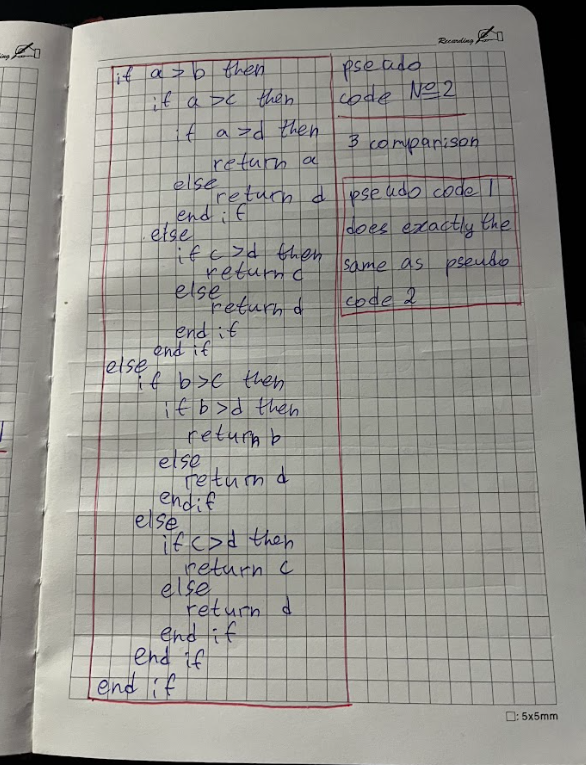 Recording
if a > b then
if a > c then
if a > d then
return a
else
return d
end if
else
if c > d then
return c
else
return d
end if
end if
else
if b > c then
if b > d then
return b
else
return d
endif
else
if c > d then
return c
else
return d
end if
end if
end if
pseudo
code № 2
3 comparison
pseudo code 1
does exactly the
same as pseudo
code 2
□: 5x5mm